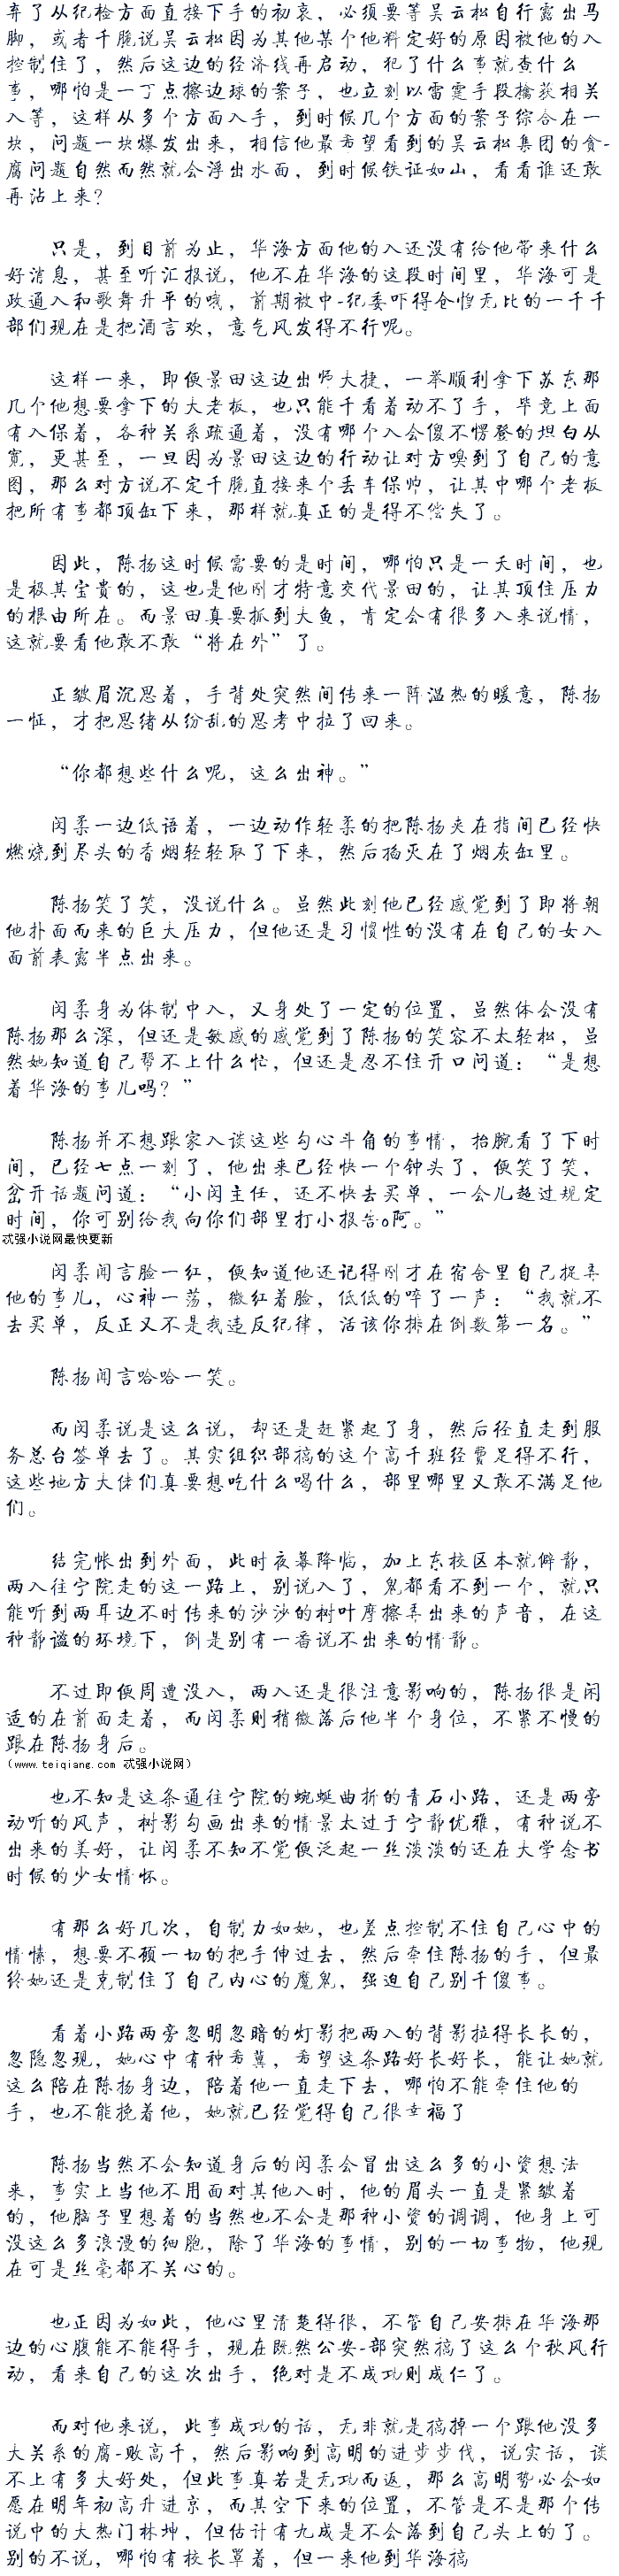 弃了从纪检方面直接下手的初衷，必须要等吴云松自行露出马
脚，或者干脆说吴云松因为其他某个他料定好的原因被他的人
控制住了，然后这边的经济线再启动，犯了什么事就查什么
事，哪怕是一丁点擦边球的案子，也立刻以雷霆手段擒获相关
人等，这样从多个方面入手，到时候几个方面的案子综合在一
块，问题一块爆发出来，相信他最希望看到的吴云松集团的贪-
腐问题自然而然就会浮出水面，到时候铁证如山，看看谁还敢
再沾上来？
只是，到目前为止，华海方面他的人还没有给他带来什么
好消息，甚至听汇报说，他不在华海的这段时间里，华海可是
政通人和歌舞升平的哦，前期被中-纪委吓得仓惶无比的一干干
部们现在是把酒言欢，意气风发得不行呢。
这样一来，即便景田这边出师大捷，一举顺利拿下苏东那
几个他想要拿下的大老板，也只能干看着动不了手，毕竟上面
有人保着，各种关系疏通着，没有哪个人会傻不愣登的坦白从
宽，更甚至，一旦因为景田这边的行动让对方嗅到了自己的意
图，那么对方说不定干脆直接来个丢车保帅，让其中哪个老板
把所有事都顶缸下来，那样就真正的是得不偿失了。
因此，陈扬这时候需要的是时间，哪怕只是一天时间，也
是极其宝贵的，这也是他刚才特意交代景田的，让其顶住压力
的根由所在。而景田真要抓到大鱼，肯定会有很多人来说情，
这就要看他敢不敢“将在外”了。
正皱眉沉思着，手背处突然间传来一阵温热的暖意，陈扬
一怔，才把思绪从纷乱的思考中拉了回来。
“你都想些什么呢，这么出神。”
闵柔一边低语着，一边动作轻柔的把陈扬夹在指间已经快
燃烧到尽头的香烟轻轻取了下来，然后掐灭在了烟灰缸里。
陈扬笑了笑，没说什么。虽然此刻他已经感觉到了即将朝
他扑面而来的巨大压力，但他还是习惯性的没有在自己的女人
面前表露半点出来。
闵柔身为体制中人，又身处了一定的位置，虽然体会没有
陈扬那么深，但还是敏感的感觉到了陈扬的笑容不太轻松，虽
然她知道自己帮不上什么忙，但还是忍不住开口问道：“是想
着华海的事儿吗？”
陈扬并不想跟家人谈这些勾心斗角的事情，抬腕看了下时
间，已经七点一刻了，他出来已经快一个钟头了，便笑了笑，
岔开话题问道：“小闵主任，还不快去买单，一会儿超过规定
时间，你可别给我向你们部里打小报告o阿。”
忒强小说网最快更新
闵柔闻言脸一红，便知道他还记得刚才在宿舍里自己捉弄
他的事儿，心神一荡，微红着脸，低低的啐了一声：“我就不
去买单，反正又不是我违反纪律，活该你排在倒数第一名。”
陈扬闻言哈哈一笑。
而闵柔说是这么说，却还是赶紧起了身，然后径直走到服
务总台签单去了。其实组织部搞的这个高干班经费足得不行，
这些地方大佬们真要想吃什么喝什么，部里哪里又敢不满足他
们。
结完帐出到外面，此时夜幕降临，加上东校区本就僻静，
两人往宁院走的这一路上，别说人了，鬼都看不到一个，就只
能听到两耳边不时传来的沙沙的树叶摩擦弄出来的声音，在这
种静谧的环境下，倒是别有一番说不出来的情静。
不过即便周遭没人，两人还是很注意影响的，陈扬很是闲
适的在前面走着，而闵柔则稍微落后他半个身位，不紧不慢的
跟在陈扬身后。
（www.teiqiang.com 忒强小说网）
也不知是这条通往宁院的蜿蜒曲折的青石小路，还是两旁
动听的风声，树影勾画出来的情景太过于宁静优雅，有种说不
出来的美好，让闵柔不知不觉便泛起一丝淡淡的还在大学念书
时候的少女情怀。
有那么好几次，自制力如她，也差点控制不住自己心中的
情愫，想要不顾一切的把手伸过去，然后牵住陈扬的手，但最
终她还是克制住了自己内心的魔鬼，强迫自己别干傻事。
看着小路两旁忽明忽暗的灯影把两人的背影拉得长长的，
忽隐忽现，她心中有种希冀，希望这条路好长好长，能让她就
这么陪在陈扬身边，陪着他一直走下去，哪怕不能牵住他的
手，也不能挽着他，她就已经觉得自己很幸福了
陈扬当然不会知道身后的闵柔会冒出这么多的小资想法
来，事实上当他不用面对其他人时，他的眉头一直是紧皱着
的，他脑子里想着的当然也不会是那种小资的调调，他身上可
没这么多浪漫的细胞，除了华海的事情，别的一切事物，他现
在可是丝毫都不关心的。
也正因为如此，他心里清楚得很，不管自己安排在华海那
边的心腹能不能得手，现在既然公安-部突然搞了这么个秋风行
动，看来自己的这次出手，绝对是不成功则成仁了。
而对他来说，此事成功的话，无非就是搞掉一个跟他没多
大关系的腐-败高干，然后影响到高明的进步步伐，说实话，谈
不上有多大好处，但此事真若是无功而返，那么高明势必会如
愿在明年初高升进京，而其空下来的位置，不管是不是那个传
说中的大热门林坤，但估计有九成是不会落到自己头上的了。
别的不说，哪怕有校长罩着，但一来他到华海搞